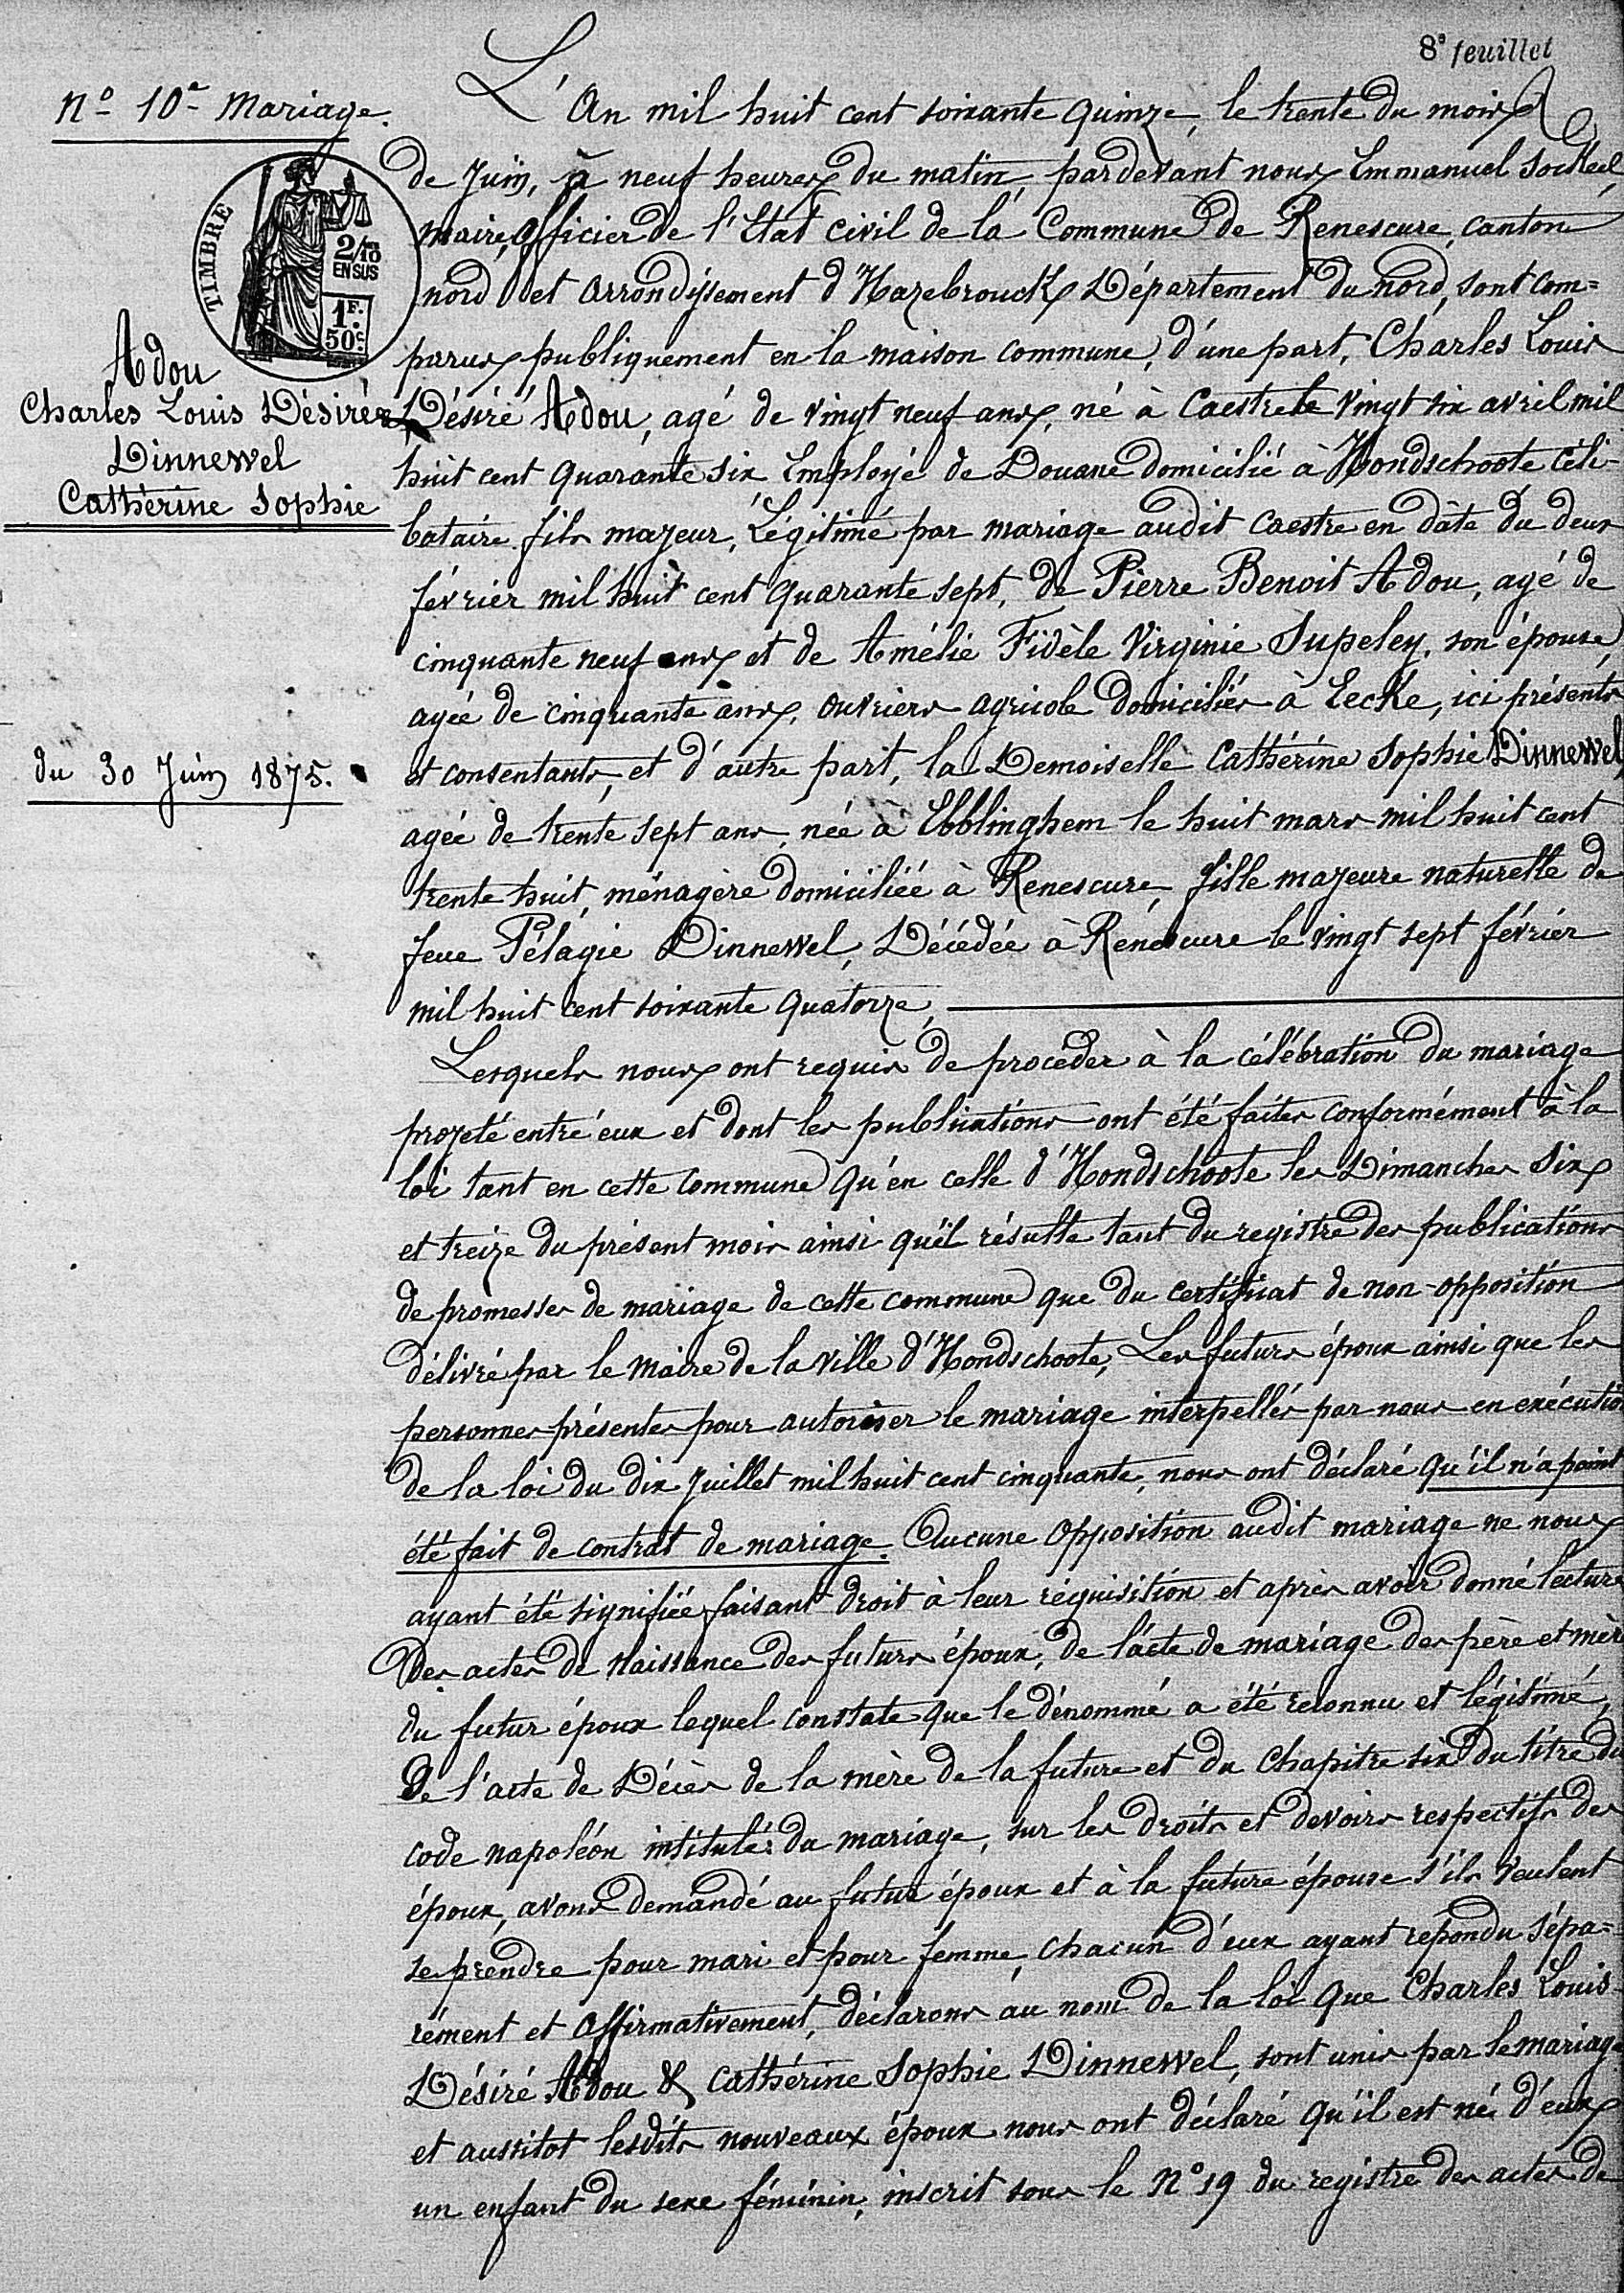 8e feuillet
No 10e Mariage.
TIMBRE
2/10
EN SUS
1F.
50c
Adou
Charles Louis Désiré &
Dinnewel
Cathérine Sophie
du 30 Juin 1875.
L'An mil huit cent soixante quinze, le trente du mois
de Juin, à neuf heures du matin, pardevant nous Emmanuel Sockeel,
maire, officier de l'Etat civil de la Commune de Renescure, canton
nord et arrondissement d'Hazebrouck Département du nord, sont com=
parus publiquement en la maison commune, d'une part, Charles Louis
Désiré Adou, agé de vingt neuf ans, né à Caestre le vingt six avril mil
huit cent quarante six Employé de Douane domicilié à Hondschoote céli-
bataire fils majeur, Légitimé par mariage audit Caestre en date du deux
février mil huit cent quarante sept, de Pierre Benoit Adou, agé de
cinquante neuf ans et de Amélie Fidèle Virginie Supeley, son épouse,
agée de cinquante ans, ouvriers agricole domiciliés à Eecke, ici présents
et consentants, et d'autre part, la Demoiselle Cathérine Sophie Dinnewel
agée de trente sept ans, née à Ebblinghem le huit mars mil huit cent
trente huit, ménagère domiciliée à Renescure, fille majeure naturelle de
feue Pélagie Dinnewel, Décédée à Renescure le vingt sept février
mil huit cent soixante quatorze,
Lesquels nous ont requis de procéder à la célébration du mariage
projeté entre eux et dont les publications ont été faites conformément à la
loi tant en cette commune qu'en celle d'Hondschoote les Dimanches six
et treize du présent mois ainsi qu'il résulte tant du registre des publications
de promesses de mariage de cette commune que du certificat de non-opposition
délivré par le Maire de la ville d'Hondschoote, Les futurs époux ainsi que les
personnes présentes pour autoriser le mariage interpellés par nous en exécution
de la loi du dix Juillet mil huit cent cinquante, nous ont déclaré qu'il n'a point
été fait de contrat de mariage. Aucune opposition audit mariage ne nous
ayant été signifiée faisant droit à leur réquisition et après avoir donné lecture
des actes de naissance des futurs époux, de l'acte de mariage des père et mère
du futur époux lequel constate que le dénommé a été reconnu et légitimé,
De l'acte de Décès de la mère de la future et du Chapitre six du titre du
code napoléon intitulé: du mariage, sur les droits et devoirs respectifs des
époux, avons demandé au futur époux et à la future épouse s'ils veulent
se prendre pour mari et pour femme, chacun d'eux ayant répondu sépa=
rément et affirmativement, déclarons au nom de la loi que Charles Louis
Désiré Adou & Cathérine Sophie Dinnewel, sont unis par le mariage
et aussitot lesdits nouveaux époux nous ont déclaré qu'il est né d'eux
un enfant du sexe féminin, inscrit sous le No 19 du registre des actes de